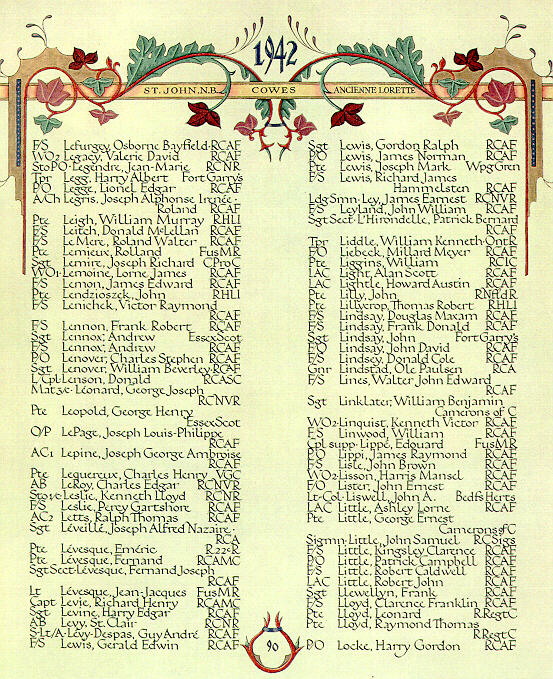 1942
ST. JOHN, N.B. COWES ANCIENNE LORETTE
F/S Lefurgey, Osborne Bayfield RCAF
WO2 Legacy, Valerie David RCAF
StoPO Legendre, Jean-Marie RCNR
Tpr Legg, Harry Albert Fort Garry's
P/O Legge, Lionel Edgar RCAF
A/Ch Legris, Joseph Alphonse Irenée
Roland RCAF
Pte Leigh, William Murray RHLI
F/S Leitch, Donald McLellan RCAF
F/S LeMere, Roland Walter RCAF
Pte Lemieux, Rolland FusMR
Sgt Lemire, Joseph Richard CProC
WO1 Lemoine, Lorne James RCAF
F/S Lemon, James Edward RCAF
Pte Lendzioszek, John RHLI
F/S Lenichek, Victor Raymond
RCAF
F/S Lennon, Frank Robert RCAF
Sgt Lennox, Andrew EssexScot
F/S Lennox, Andrew RCAF
P/O Lenover, Charles Stephen RCAF
Sgt Lenover, William Beverley RCAF
L/Cpl Lenson, Donald RCASC
Mat 3c Léonard, George Joseph
RCNVR
Pte Leopold, George Henry
EssexScot
O/P LePage, Joseph Louis-Philippe
RCAF
AC1 Lepine, Joseph George Ambroise
RCAF
Pte Lequereux, Charles Henry VGC
AB LeRoy, Charles Edgar RCNVR
Stovc Leslie, Kenneth Lloyd RCNR
F/S Leslie, Percy Gartshore RCAF
AC2 Letts, Ralph Thomas RCAF
Sgt Léveillé, Joseph Alfred Nazaire
RCA
Pte Lévesque, Eméric R22eR
Pte Lévesque, Fernand RCAMC
Sgt Sect Lévesque, Fernand Joseph
RCAF
Lt Lévesque, Jean-Jacques FusMR
Capt Levie, Richard Henry RCAMC
Sgt Levine, Harry Edgar RCAF
AB Levy, St. Clair RCNR
S-Lt/A Lévy-Despas, Guy André RCAF
F/S Lewis, Gerald Edwin RCAF
Sgt Lewis, Gordon Ralph RCAF
P/O Lewis, James Norman RCAF
Pte Lewis, Joseph Mark WpgGren
F/S Lewis, Richard James
Hammelsten RCAF
Ldg Smn Ley, James Earnest RCNVR
F/S Leyland, John William RCAF
Sgt Sect L'Hirondelle, Patrick Bernard
RCAF
Tpr Liddle, William Kenneth OntR
F/O Liebeck, Millard Meyer RCAF
Pte Liggins, William RCIC
LAC Light, Alan Scott RCAF
LAC Lightle, Howard Austin RCAF
Pte Lilly, John RNfldR
Pte Lillycrop, Thomas Robert RHLI
F/S Lindsay, Douglas Maxam RCAF
F/S Lindsay, Frank Donald RCAF
Sgt Lindsay, John Fort Garry's
F/O Lindsay, John David RCAF
F/S Lindsey, Donald Cole RCAF
Gnr Lindstad, Ole Paulsen RCA
F/S Lines, Walter John Edward
RCAF
Sgt Linklater, William Benjamin
Camerons of C
WO2 Linquist, Kenneth Victor RCAF
F/S Linwood, William RCAF
Cpl supp Lippé, Edouard FusMR
P/O Lippi, James Raymond RCAF
F/S Lisle, John Brown RCAF
WO2 Lisson, Harris Mansel RCAF
F/O Lister, John Ernest RCAF
Lt-Col Liswell, John A. Bedfs Herts
LAC Little, Ashley Lorne RCAF
Pte Little, George Ernest
Camerons of C
Sigmn Little, John Samuel RCSigs
F/S Little, Kingsley Clarence RCAF
P/O Little, Patrick Campbell RCAF
F/S Little, Robert Caldwell RCAF
LAC Little, Robert John RCAF
Sgt Llewellyn, Frank RCAF
F/S Lloyd, Clarence Franklin RCAF
Pte Lloyd, Leonard RRegtC
Pte Lloyd, Raymond Thomas
RRegtC
P/O Locke, Harry Gordon RCAF
90